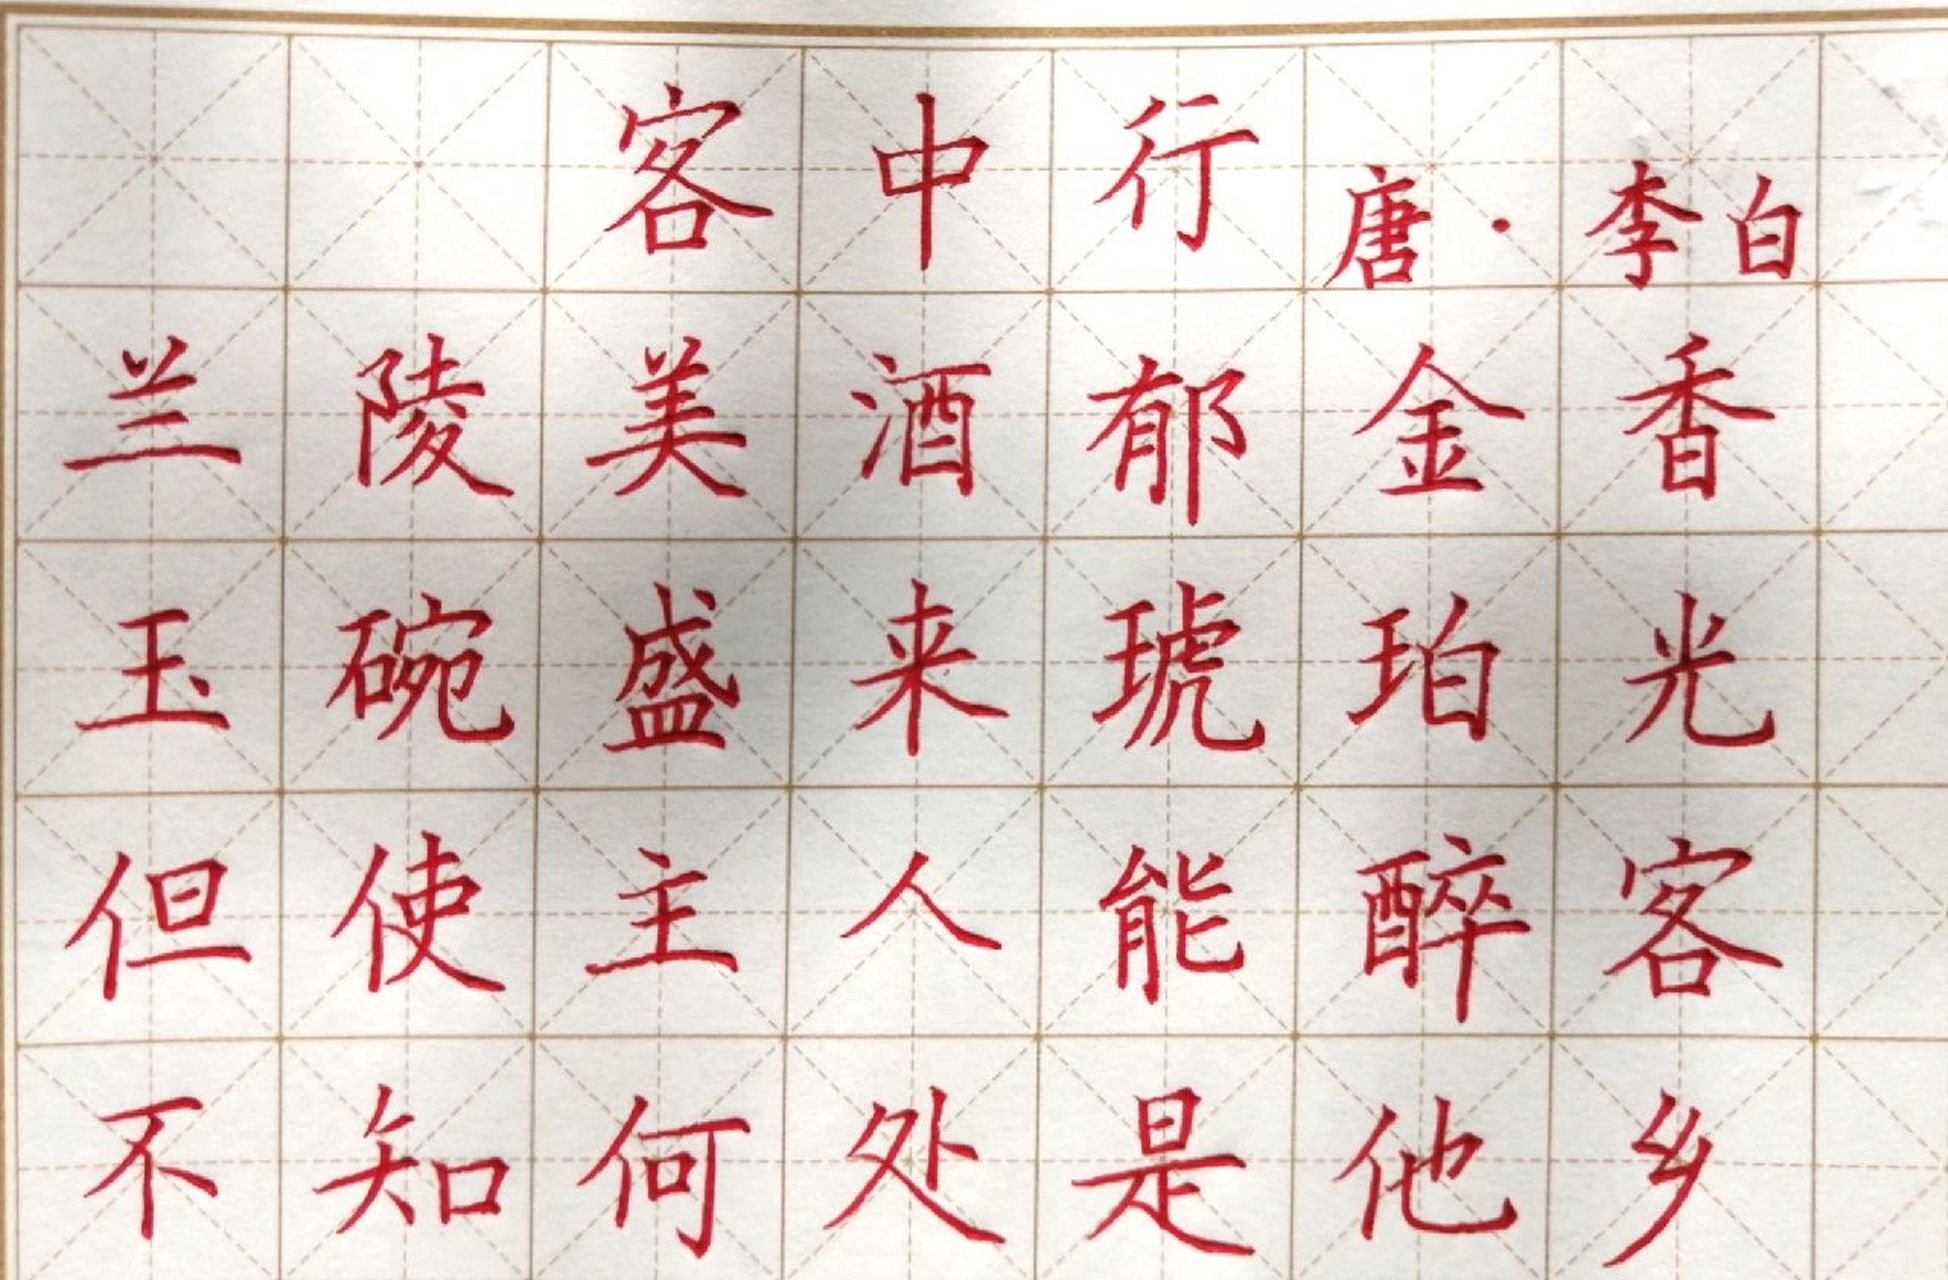 客中行 唐·李白
兰陵美酒郁金香
玉碗盛来琥珀光
但使主人能醉客
不知何处是他乡